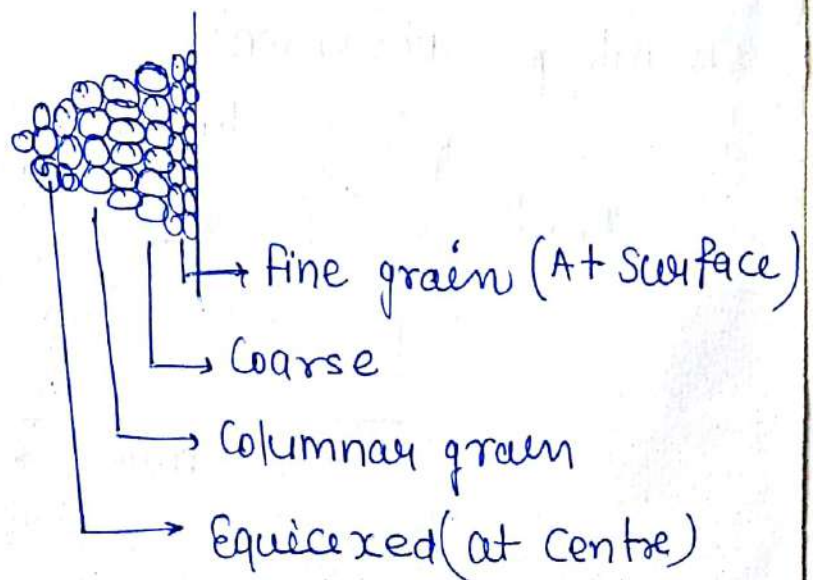 fine grain (At surface)
Coarse
Columnar grain
Equicexed (at centre)